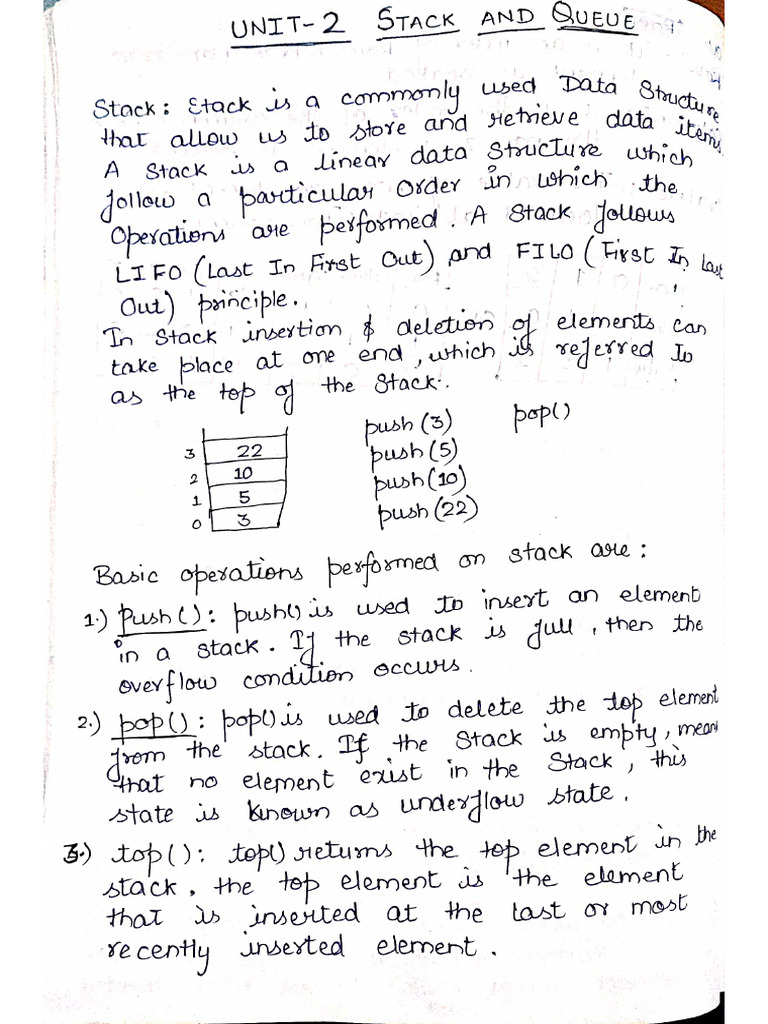 UNIT-2 STACK AND QUEUE
Stack: Stack is a commonly used Data Structure
that allow us to store and retrieve data items
A Stack is a linear data Structure which
follow a particular Order in which the
Operations are performed. A Stack follows
LIFO (Last In First Out) and FILO (First In Last
Out) principle.
In Stack insertion & deletion of elements can
take place at one end, which is referred to
as the top of the Stack.
push(3) pop()
3 22 push(5)
2 10 push(10)
1 5 push(22)
0 3
Basic operations performed on stack are:
1.) Push(): push() is used to insert an element
in a stack. If the stack is full, then the
overflow condition occurs.
2.) pop(): pop() is used to delete the top element
from the stack. If the Stack is empty, mean
that no element exist in the Stack, this
state is known as underflow state.
3.) top(): top() returns the top element in the
stack, the top element is the element
that is inserted at the last or most
recently inserted element.